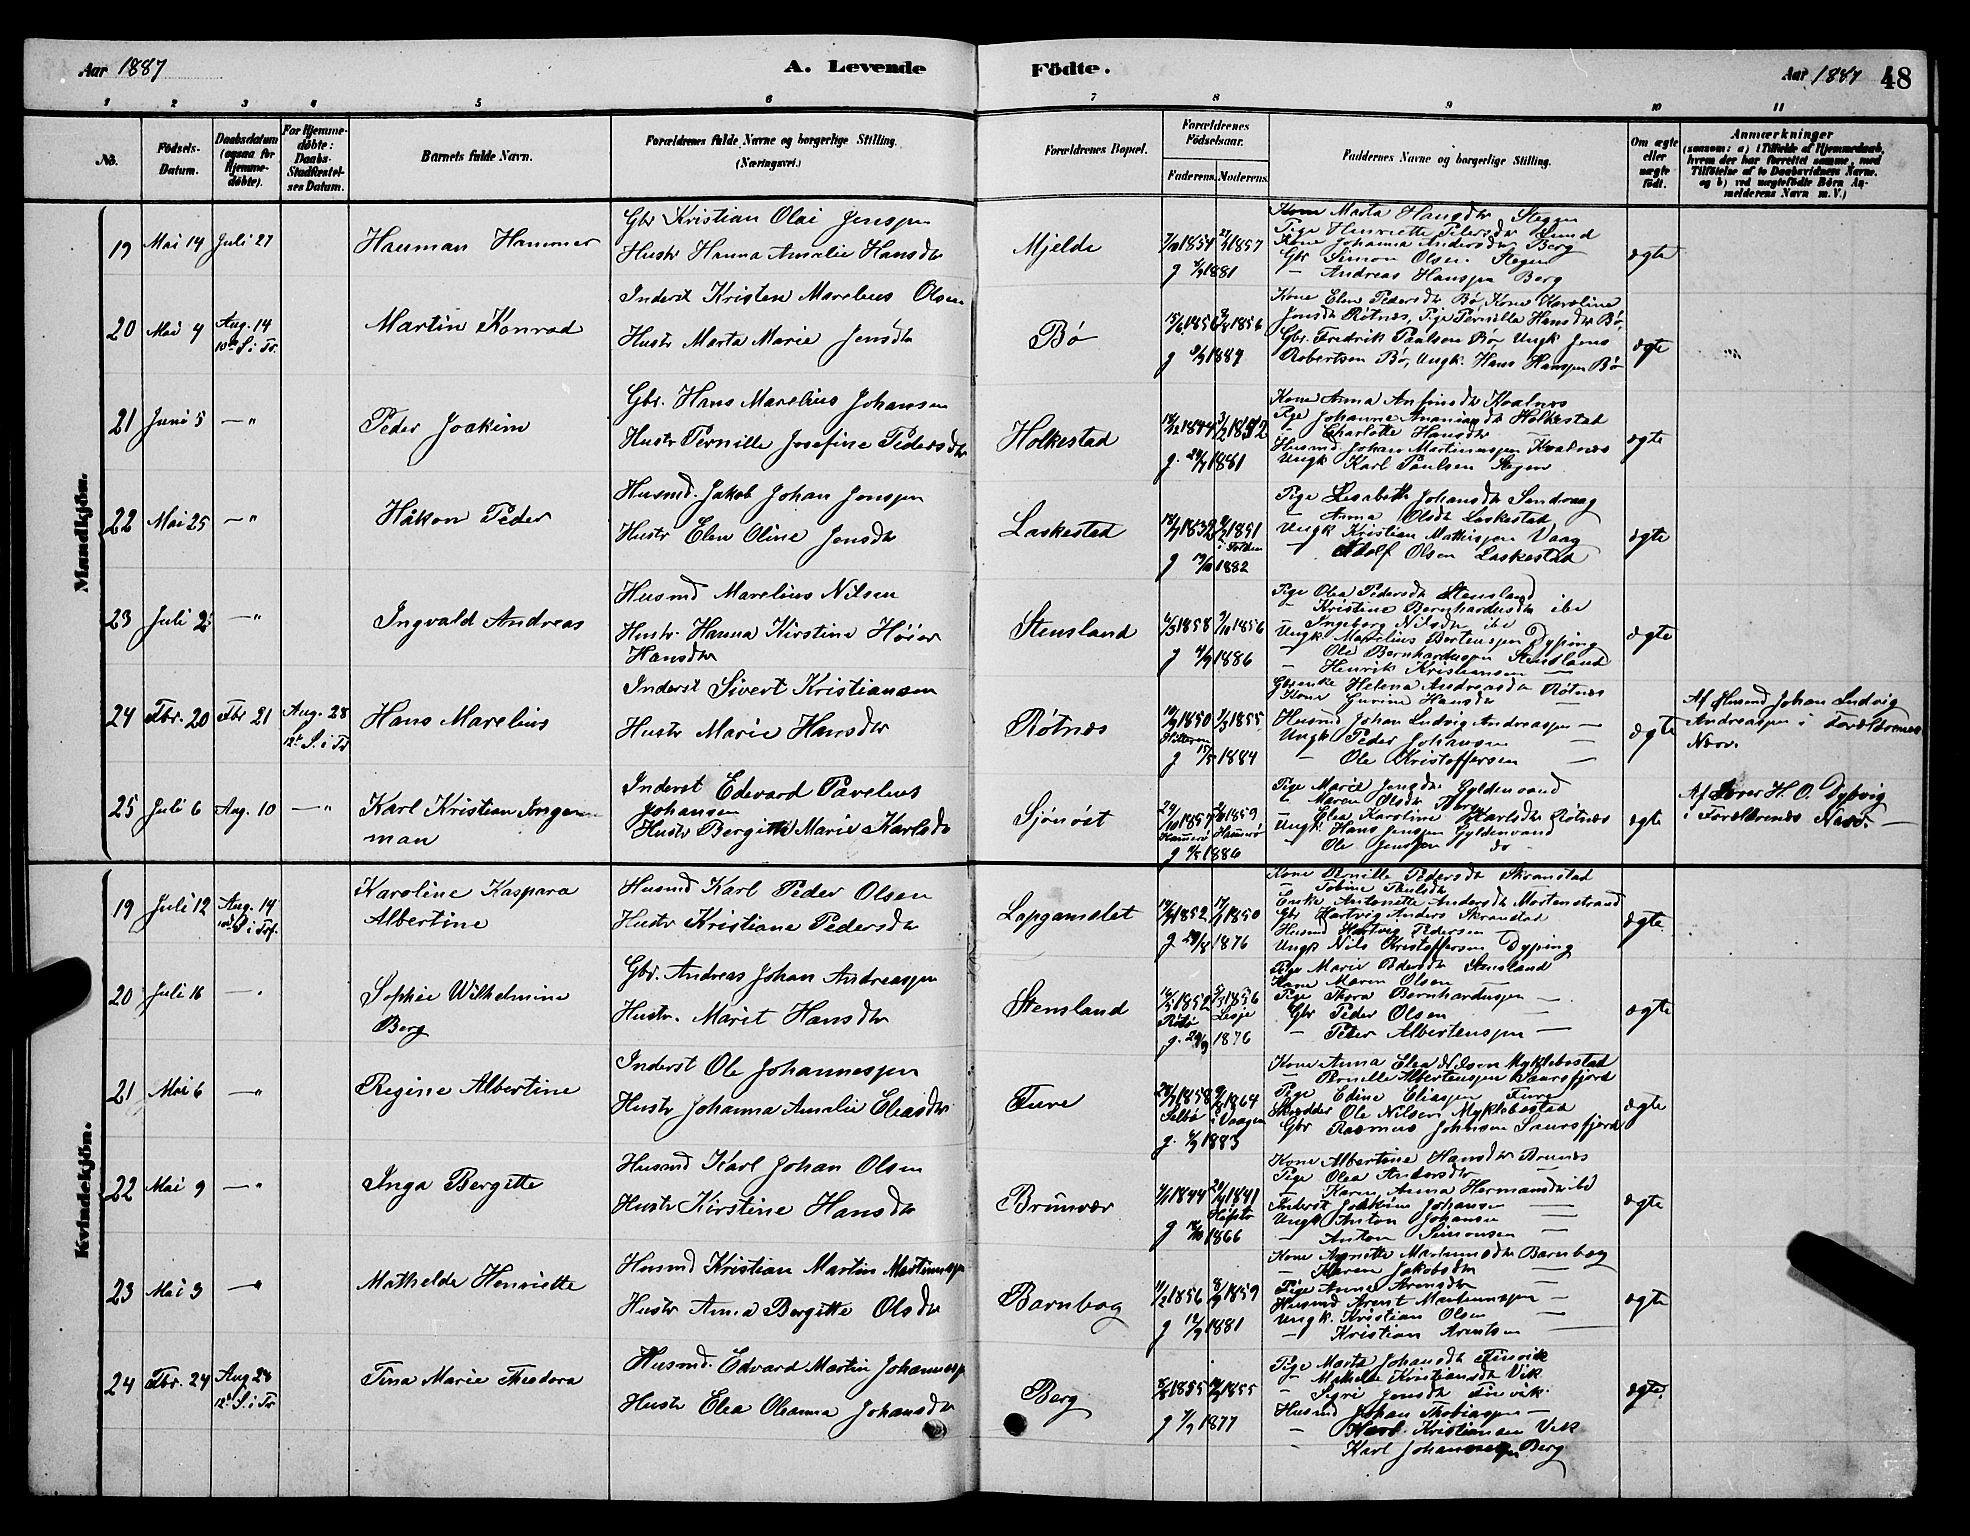 Aar 1887
A. Levende
Födte.
Aar 1887 48
1 2 3 4 5 6 7 8 9 10 11
No. Födsels-Datum. Daabsdatum (ogsaa for Hjemme-døbte). For Hjemme-døbte: Daabs-Stadfæstel-ses Datum. Barnets fulde Navn. Forældrenes fulde Navne og borgerlige Stilling. (Næringsvei.) Forældrenes Bopæl. Forældrenes Födselsaar. Faderens. Moderens. Faddernes Navne og borgerlige Stilling. Om ægte eller uægte födt. Anmærkninger (saasom: a) i Tilfælde af Hjemmedaab, hvem der har forrettet samme, med Tilföielse af to Daabsvidners Navne. og b) ved uægtefödte Börn Anmelderens Navn m. V.)
Mandkjön.
19 Mai 14 Juli 27 Hauman Hammer
Gbr Kristian Olai Jenssen
Hustr Hanna Amalie Hansdtr
Mjelde 1854 1857
g 1881
Kone Marta Hansdtr Steggen
Pige Henriette Petersdtr Sund
Kone Johanna Andersdtr Berg
Gbr Simon Olsen Stegen
— Andreas Hanssen Berg
ægte
20 Mai 4 Aug. 14 10de S. i Tr. Martin Konrad
Inderst Kristen Marelius Olsen
Hustr Marta Marie Jensdtr
Bø 1856 1856
g 1884
Kone Elen Pedersdtr Bø, Kone Karoline
Jonsdtr Røtnæs, Pige Pernilla Hansdtr Bø,
Gbr. Fredrik Paulsen Bø, Ungk Jens
Robertsen Bø, Ungk. Hans Hanssen Bø
ægte
21 Juni 5 —" Peder Joakim
Gbr. Hans Marelius Johansen
Hustr Pernille Josefine Pedersdtr
Holkestad 1844
g. 1881
Kone Anna Anfinsdtr Kvalnæs
Pige Johanna Ananiasdtr Holkestad
— Charlotte Hansdtr
Husmd Johan Martinussen Kvalnæs
Ungk Karl Paulsen Stegen
ægte
22 Mai 25 —" Håkon Peder
Husmd. Jakob Johan Jonssen
Hustr Elen Oline Jensdtr
Laskestad 1851
i Folden
g 1882
Pige Lisabeth Johansdtr Sandvaag
— Anna Olsdtr Laskestad
Ungk Kristian Mathissen Vaag
— Adolf Olsen Laskestad
ægte
23 Juli 2 —" Ingvald Andreas
Husmd Marelius Nilsen
Hustr. Hanna Kirstine Høier
Hansdtr
Stensland 1858 1856
g 1886
Pige Olea Pedersdtr Stensland
— Kristine Bernhardusdtr ibd
— Ingeborg Nilsdtr ibd
Ungk Marelius Bertenssen Dyping
— Ole Bernhardussen Stensland
— Henrik Kristensen —
ægte
24 Fbr. 20 Fbr 21 Aug. 28 12te S. i Tr Hans Marelius
Inderst Sivert Kristiansen
Hustr Marie Hansdtr
Røtnæs 1850 1855
g 1884
Gbrenke Helena Andreasdtr Røtnæs
Kone Gurine Hansdtr —
Husmd Johan Ludvig Andreassen —
Ungk Peder Johansen —
— Ole Kristoffersen —
ægte
Af Husmd Johan Ludvig
Andreassen i Forældrenes
Nærv.
25 Juli 6 Aug. 10 —" Karl Kristian Inger-
man
Inderst Edevard Pavelius
Johansen
Hustr Bergitte Marie Karlsdtr
Sjønøst 1857 1859
Hamerø Hamerø
g 1886
Pige Marie Jensdtr Gyldenvand
— Maren Olsdtr Berg
— Elea Karoline Karlsdtr Røtnæs
Ungk. Hans Jenssen Gyldenvand
— Ole Jenssen do
ægte
Af Lærer H. O. Dybvig
i Forældrenes Nærv. —
Kvindekjön.
19 Juli 12 Aug. 14 10de S. i Trf. Karoline Kaspara
Albertine
Husmd Karl Peder Olsen
Hustr Kristiane Pedersdtr
Lapgamslet 1852 1850
g 1876
Kone Pernille Pedersdtr Skranstad
— Tobine Paulsdtr
Enke Antonette Andersdtr Mortenstrand
Gbr Hartvig Anders Skranstad
Husmd Hartvig Pedersen —
Ungk Nils Kristoffersen Dyping
ægte
20 Juli 16 — Sophie Wilhelmine
Berg
Gbr. Andreas Johan Andreassen
Hustr. Marit Hansdtr
Stensland 1852 1856
Lesje
g. 1876
Pige Marie Pedersdtr Stensland
Kone Maren Olsen —
Pige Thora Bernhardussen —
Gbr Peder Olsen —
— Peter Albertenssen —
ægte
21 Mai 6 —" Regine Albertine
Inderst Ole Johannessen
Hustr Johanna Amalie Eliasdtr
Fure 1858 1864
Selbo i Vaagen
g. 1883
Kone Anna Elea Nilsen Myklebostad
— Pernille Albertenssen Saursfjord
Pige Edine Eliassen Fure
Skrædder Ole Nilsen Myklebostad
Gbr Rasmus Johnsen Saursfjord
ægte
22 Mai 9 —" Inga Bergitte
Husmd Karl Johan Olsen
Hustr Kirstine Hansdtr
Brunvær 1844 1841
g 1866
Kone Albertine Hansdtr Brunæs
Pige Olea Andersdtr —
— Karen Anna Hermansdtr ibd
Inderst Joakim Johansen —
Ungk Anton Johansen —
— Anton Simonsen —
ægte
23 Mai 3 —" Mathelde Henriette
Husmd Kristian Martin Martinussen
Hustr Anna Bergitte Olsdtr
Barnbog 1856 1859
g 1881
Kone Anette Martinusdtr Barnbog
— Maren Jakobsdtr —
Pige Anne Arensdtr —
Husmd Arent Martinussen —
Ungk. Kristian Olsen —
— Kristian Arentsen —
ægte
24 Fbr. 24 Aug 28 12te S. i Tr Tina Marie Theodora
Husmd. Edvard Martin Johannessen
Hustr Elea Oleanna Johansdtr
Berg 1855 1855
g 1877
Pige Marta Johansdtr Finvik
— Mathilde Kristiansdtr Vik
— Sigri Jensdtr Finvik
Husmd Johan Thobiassen —
— Karl Kristiansen Vik
— Karl Johannessen Berg
ægte.